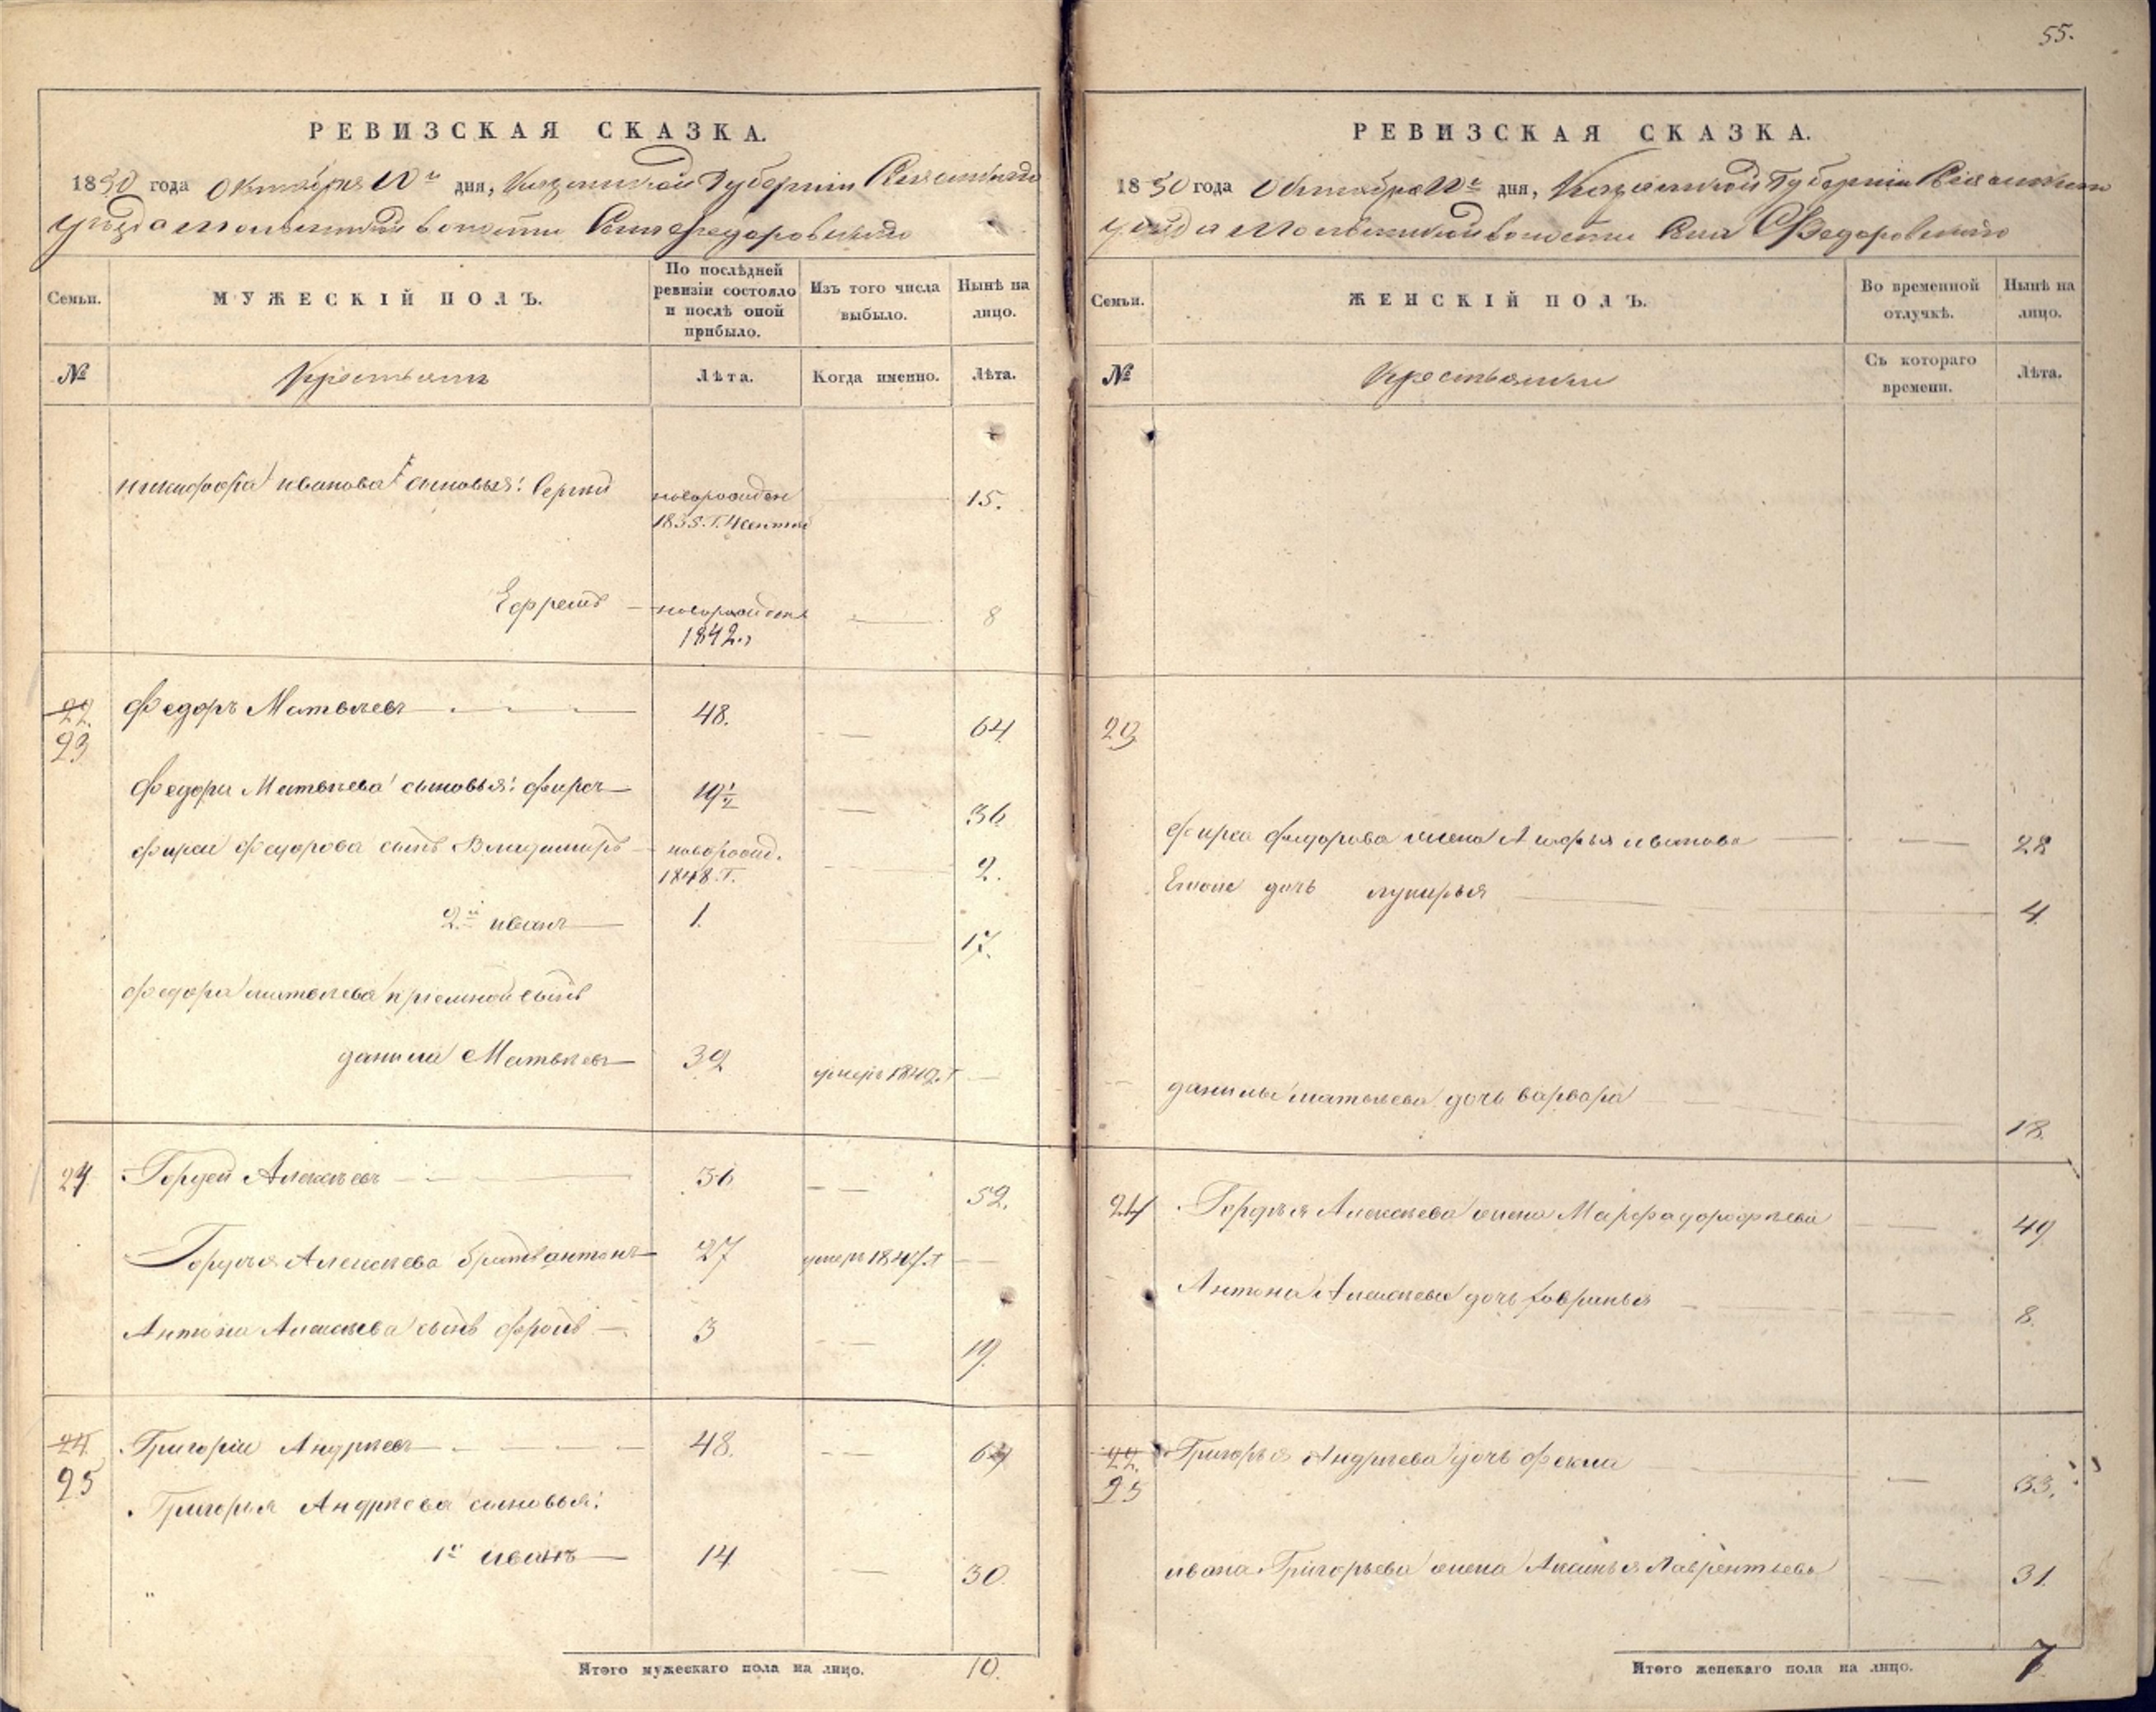 55.
РЕВИЗСКАЯ СКАЗКА.
1850 года Октября 10го дня, Казанской Губерніи Свіяжскаго
уѣзда волости Села Федоровскаго
Семьи.
МУЖЕСКІЙ ПОЛЪ.
По послѣдней ревизіи состояло и послѣ оной прибыло.
Изъ того числа выбыло.
Нынѣ на лицо.
№
Крестьянъ
Лѣта.
Когда именно.
Лѣта.
Никифора Иванова сыновья: Сергей новорожден 15.
1835.Г.
Ефремъ — новорожденъ 8
1842.
22. Федоръ Матвѣевъ 48. 64
23
Федора Матвѣева сыновья: Фирсъ 19½ 36
Фирса Федорова сынъ Владимиръ новорожд. 2.
1848.Г.
2й Иванъ 1. 17.
Федора Матвѣева пріемной сынъ
Данила Матвѣевъ 39 умеръ 1849.Г —
24 Гордей Алексѣевъ 36 52.
Гордѣя Алексѣева братъ Антонъ 27 умеръ 1847.Г —
Антона Алексѣева сынъ Фролъ 3 19.
24. Григорій Андрѣевъ 48. 64
25
Григорья Андрѣева сыновья:
1й Иванъ 14 30.
Итого мужескаго пола на лицо. 10.
РЕВИЗСКАЯ СКАЗКА.
1850 года Октября 10го дня, Казанской Губерніи Свіяжскаго
уѣзда волости Села Федоровскаго
Семьи.
ЖЕНСКІЙ ПОЛЪ.
Во временной отлучкѣ.
Нынѣ на лицо.
№
Крестьянки
Съ котораго времени.
Лѣта.
23
Фирса Федорова жена Иванова 28
дочь Лукерья 4.
Данилы Матвѣева дочь Варвара 18.
24 Гордѣя Алексѣева жена Марфа Дорофѣева 49
Антона Алексѣева дочь Ховранья 8.
22. Григорья Андрѣева дочь Фекла 33.
25
Ивана Григорьева жена Аксинья Лаврентьева 31
Итого женскаго пола на лицо. 7